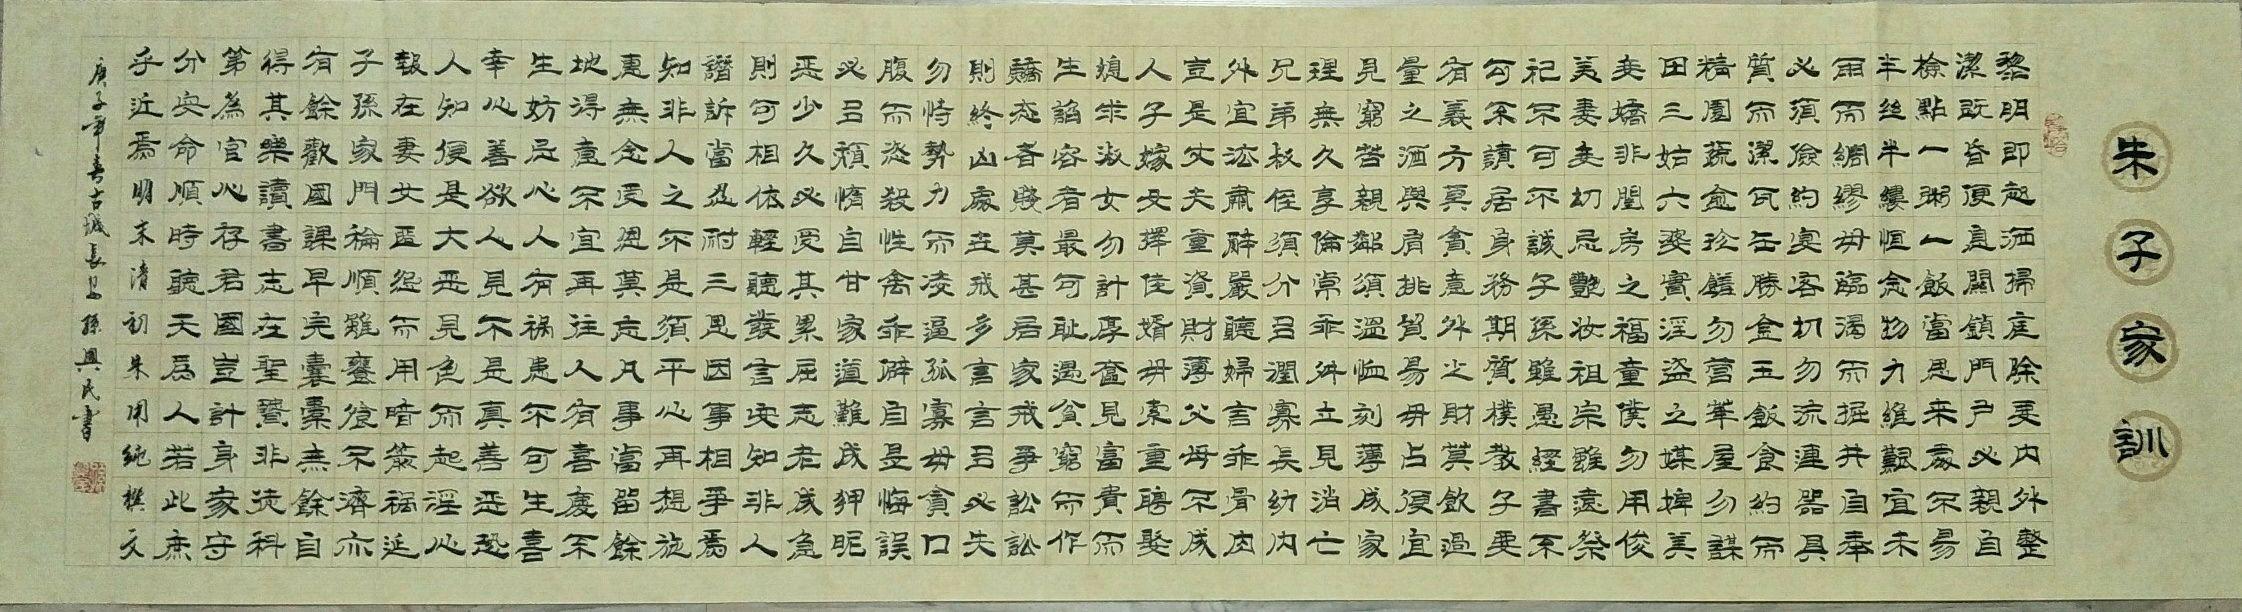 朱子家訓
黎明即起洒掃庭除要內外整
潔既昏便息關鎖門戶必親自
檢點一粥一飯當思來處不易
半絲半縷恒念物力維艱宜未
雨而綢繆毋臨渴而掘井自奉
必須儉約宴客切勿流連器具
質而潔瓦缶勝金玉飯食約而
精園蔬愈珍饈勿營華屋勿謀
田三姑六婆實淫盜之媒婢美
妾嬌非閨房之福童僕勿用俊
美妻妾切忌艷妝祖宗雖遠祭
祀不可不誠子孫雖愚經書不
可不讀居身務期質樸教子要
有義方莫貪意外之財莫飲過
量之酒與肩挑貿易毋占便宜
見窮苦親鄰須溫恤刻薄成家
理無久享倫常乖舛立見消亡
兄弟叔侄須分多潤寡長幼內
外宜法肅辭嚴聽婦言乖骨肉
豈是丈夫重資財薄父母不成
人子嫁女擇佳婿毋索重聘娶
媳求淑女勿計厚奩見富貴而
生諂容者最可耻遇貧窮而作
驕态者賤莫甚居家戒爭訟訟
則終凶處世戒多言言多必失
勿恃勢力而凌逼孤寡毋貪口
腹而恣殺牲禽乖僻自是悔誤
必多頹惰自甘家道難成狎昵
惡少久必受其累屈志老成急
則可相依輕聽發言安知非人
譖訴當忍耐三思因事相爭焉
知非人之不是須平心再想施
惠無念受恩莫忘凡事當留餘
地得意不宜再往人有喜慶不
生妨忌心人有禍患不可生喜
幸心善欲人見不是真善惡恐
人知便是大惡見色而起淫心
報在妻女匿怨而用暗箭禍延
子孫家門和順雖饔飧不濟亦
有餘歡國課早完囊橐無餘自
得其樂讀書志在聖賢非徒科
第為官心存君國豈計身家守
分安命順時聽天為人若此庶
乎近焉 明末清初朱用純撰文
庚子年春古城長安孫興民書